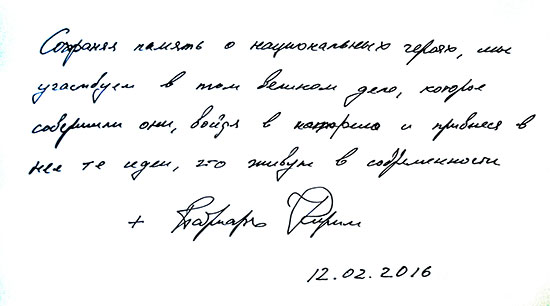 Сохраняя память о национальных героях, мы
участвуем в том великом деле, которое
совершили они, войдя в историю и привнеся в
нее те идеи, что живут в современности
+ Патриарх Кирилл
12.02.2016